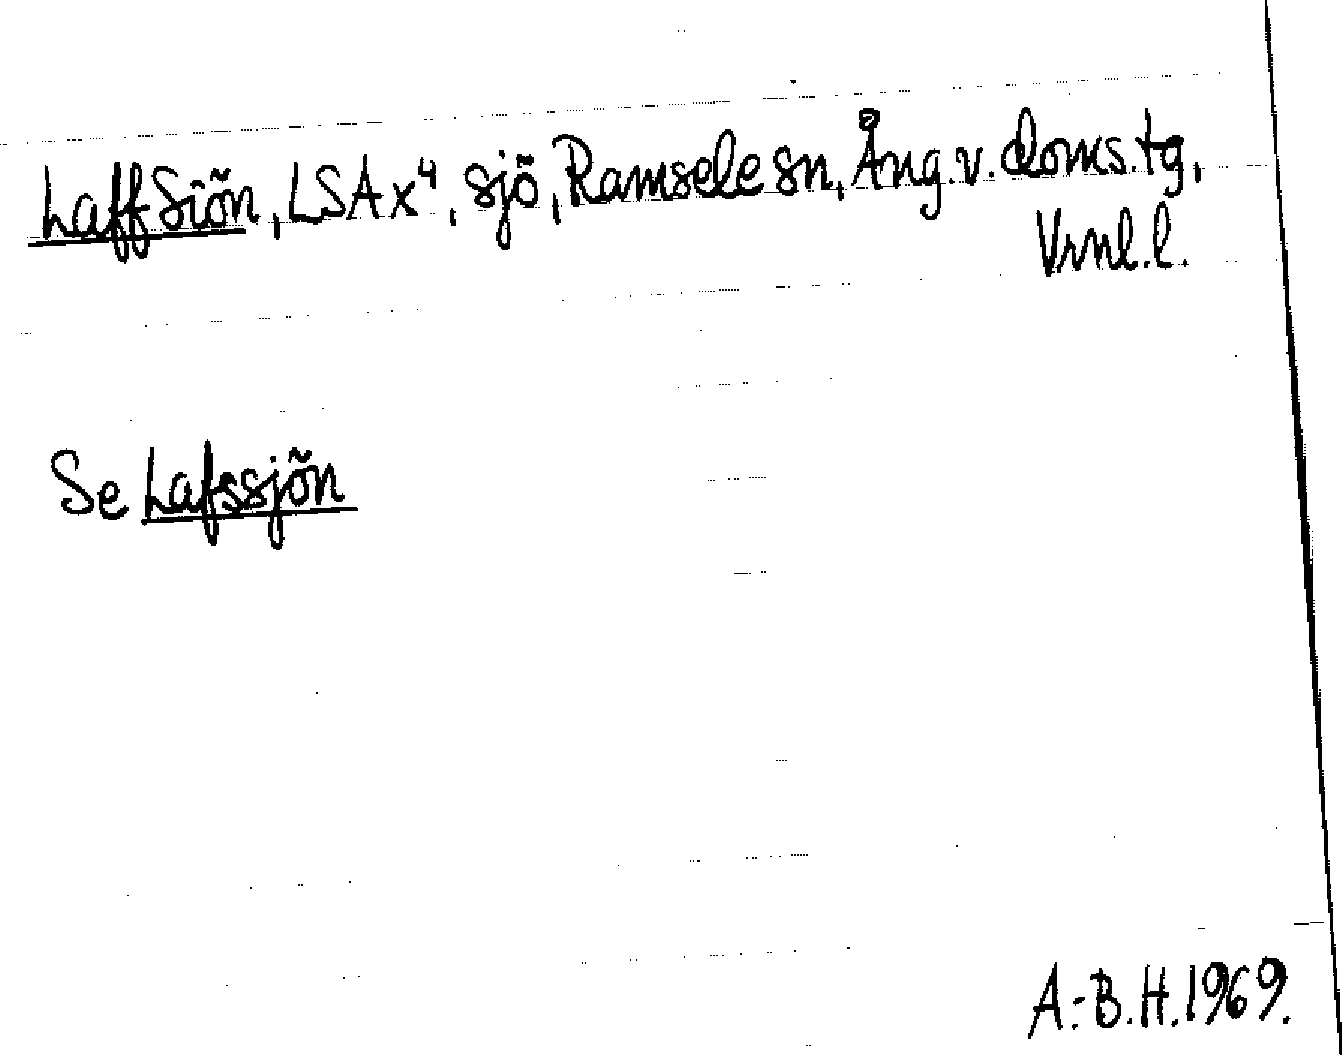 Laff Siön, LSA x⁴, sjö, Ramsele sn, Ång.v.doms.tg,
Vrnl.l.
Se Lafssjön
A.-B.H.1969.